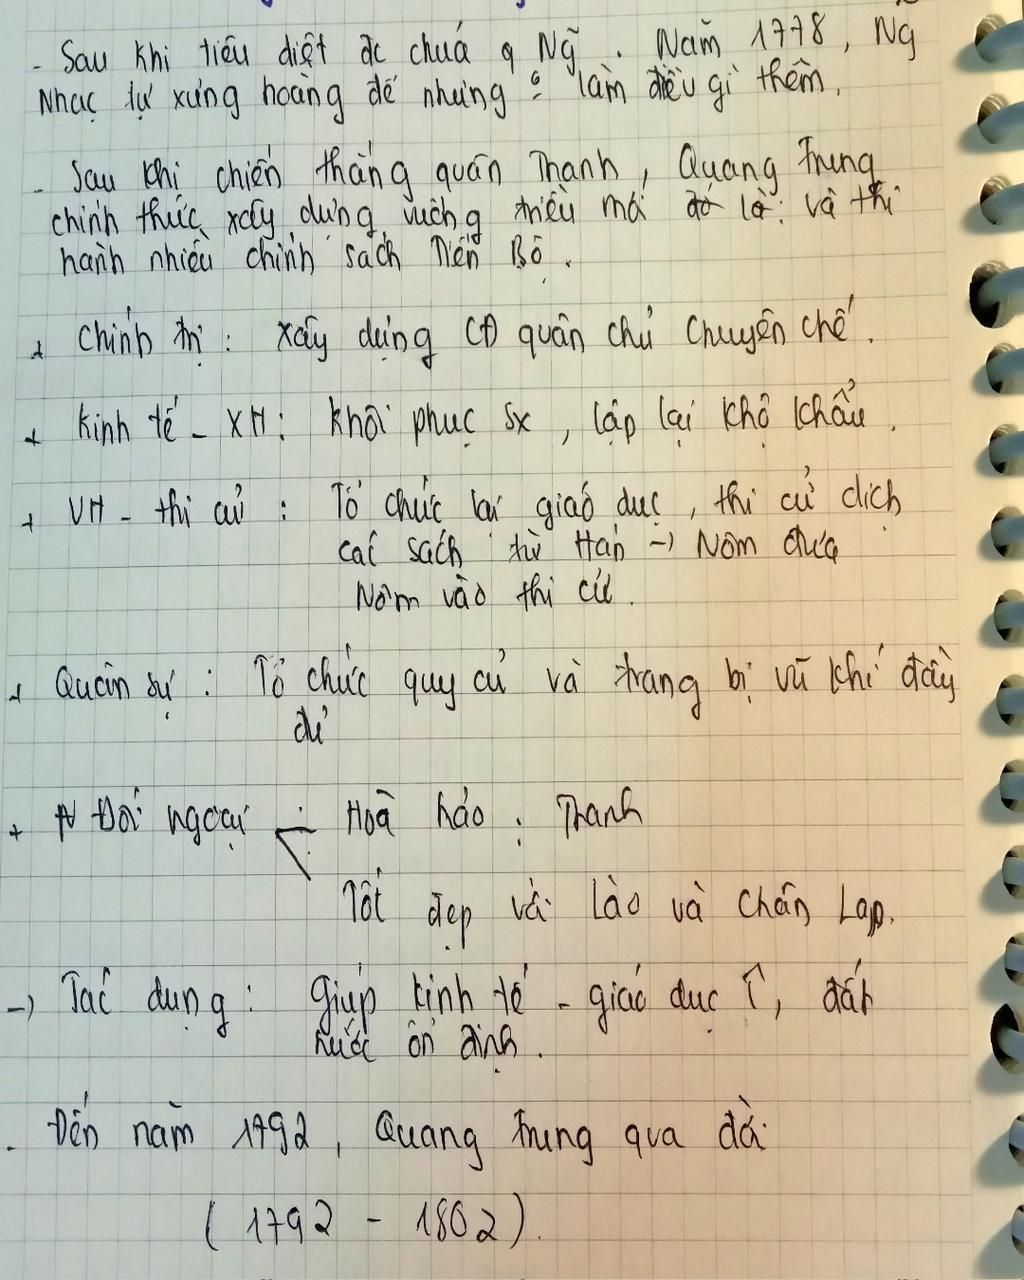 - Sau khi tiêu diệt đc chúa q Ng~. Năm 1778, Ng
Nhạc tự xưng hoàng đế nhưng º làm điều gì thêm.
- Sau khi chiến thắng quân Thanh, Quang Trung
chính thức xây dựng vương triều mới đó là: và thi
hành nhiều chính sách Tiến Bộ.
+ Chính trị: Xây dựng CĐ quân chủ chuyên chế.
+ Kinh tế - XH: Khôi phục sx, lập lại khộ khẩu.
+ VH - thi cử: Tổ chức lại giáo dục, thi cử dịch
các sách từ Hán -> Nôm đưa
Nôm vào thi cử.
+ Quân sự: Tổ chức quy củ và trang bị vũ khí đầy
đủ
+ Đối ngoại: Hoà hảo: Thanh
Tốt đẹp với Lào và Chân Lạp.
-> Tác dụng: Giúp kinh tế - giáo dục ↑, đất
nước ổn định.
- Đến năm 1792, Quang Trung qua đời
(1792 - 1802).